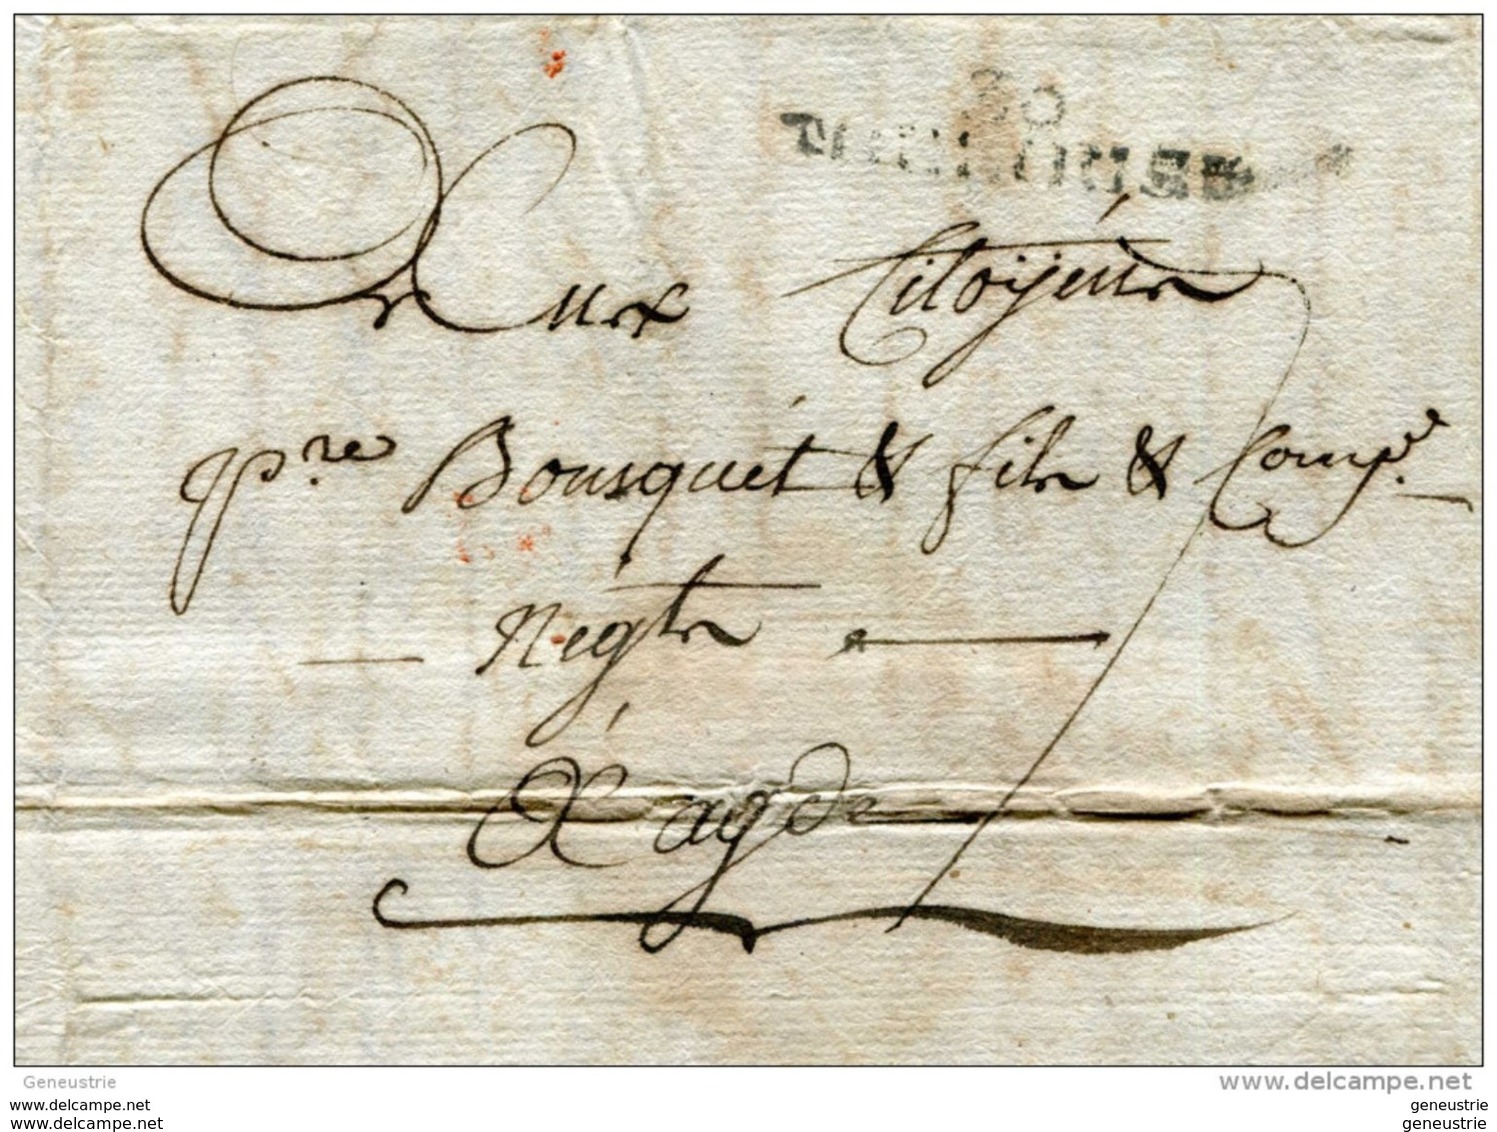 30
TOULOUSE
Aux Citoyens
pre Bousquét & fils & Compe.
Negts
A agde
7
Geneustrie
www.delcampe.net
geneustrie
geneustrie
geneustrie
geneustrie